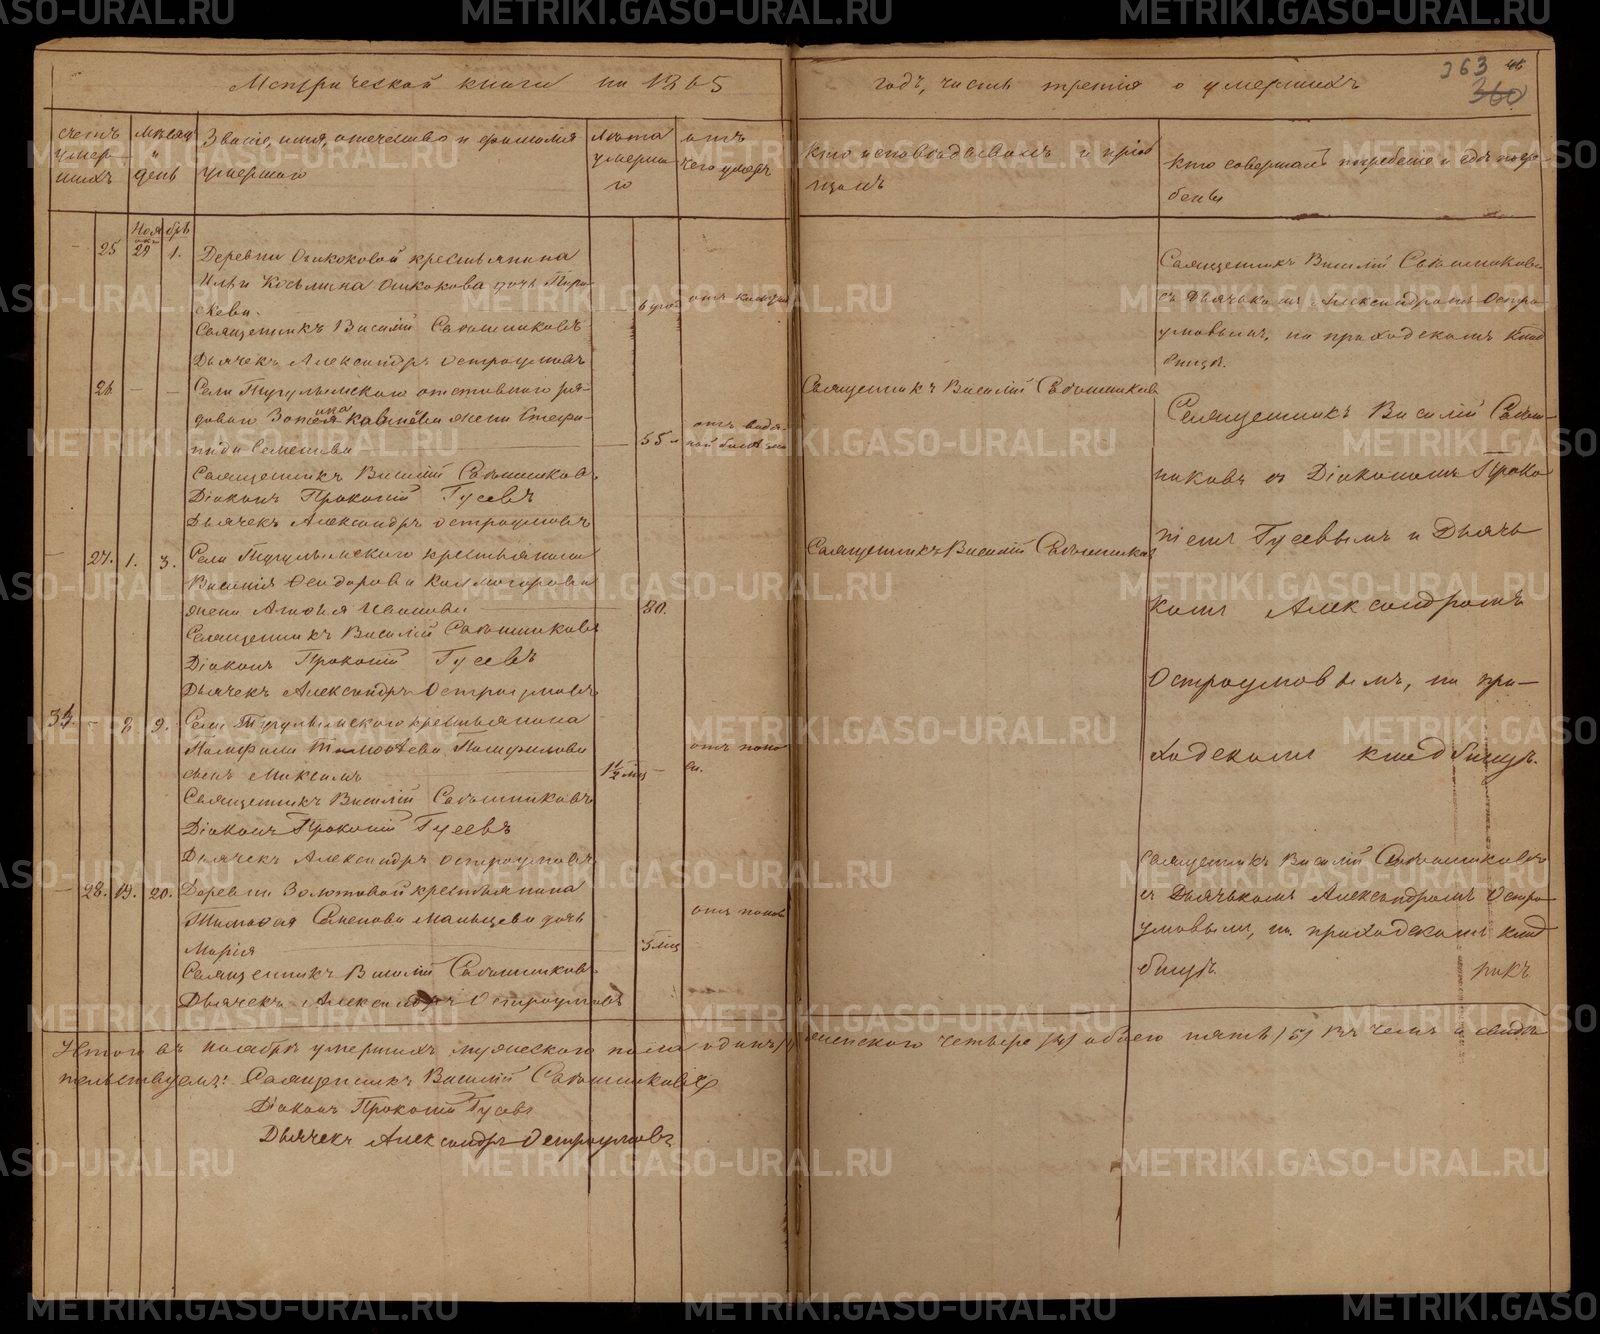 Метрической книги на 1865
годъ, часть третія о умершихъ
363
360
счетъ умершихъ
мѣсяцъ и день
Званіе, имя, отечество и фамилія умершаго
Лѣта умершаго
отъ чего умеръ
кто исповѣдывалъ и пріобщалъ
кто совершалъ погребеніе и гдѣ погребены
Ноябрь
25 29 1.
Деревни крестьянина
дочь Параскева
6 год
отъ кашля
Священникъ Василій Сабошниковъ
Дьячекъ Александръ Остроумовъ
Священникъ Василій
съ Дьячькомъ Александромъ Остроумовымъ, на приходскомъ кладбищѣ.
26 — —
Села Тугулымского отставного рядоваго жена Степанида Семенова
55
отъ водяной болезни
Священникъ Василій Сабошниковъ
Діаконъ Прокопій Гусевъ
Дьячекъ Александръ Остроумовъ
Священникъ Василій Сабошниковъ
Священникъ Василій Сабошниковъ съ Діакономъ Прокопіемъ Гусевымъ и Дьячькомъ Александромъ Остроумовымъ, на приходскомъ кладбищѣ.
27. 1. 3.
Села Тугулымского крестьянина
Василія Сидорова Колмогорова
жена Иванова
80.
Священникъ Василій Сабошниковъ
Діаконъ Прокопій Гусевъ
Дьячекъ Александръ Остроумовъ
Священникъ Василій Сабошниковъ
— 8 9.
Села Тугулымского крестьянина
Памфила Тимоѳеева Панфилова
сынъ Максимъ
1 1/2 мц
отъ поноса.
Священникъ Василій Сабошниковъ
Діаконъ Прокопій Гусевъ
Дьячекъ Александръ Остроумовъ
28. 19. 20.
Деревни Золотовой крестьянина
Мальцева дочь
Марія
3 мц
отъ поноса
Священникъ Василій Сабошниковъ
Дьячекъ Александръ Остроумовъ
Священникъ Василій Сабошниковъ
съ Дьячькомъ Александромъ Остроумовымъ, на приходскомъ кладбищѣ
Итого въ ноябрѣ умершихъ мужескаго пола одинъ женского четыре (4) обоего пять (5) въ чемъ и свидѣтельствуемъ: Священникъ Василій Сабошниковъ
Діаконъ Прокопій Гусевъ
Дьячекъ Александръ Остроумовъ
METRIKI.GASO-URAL.RU